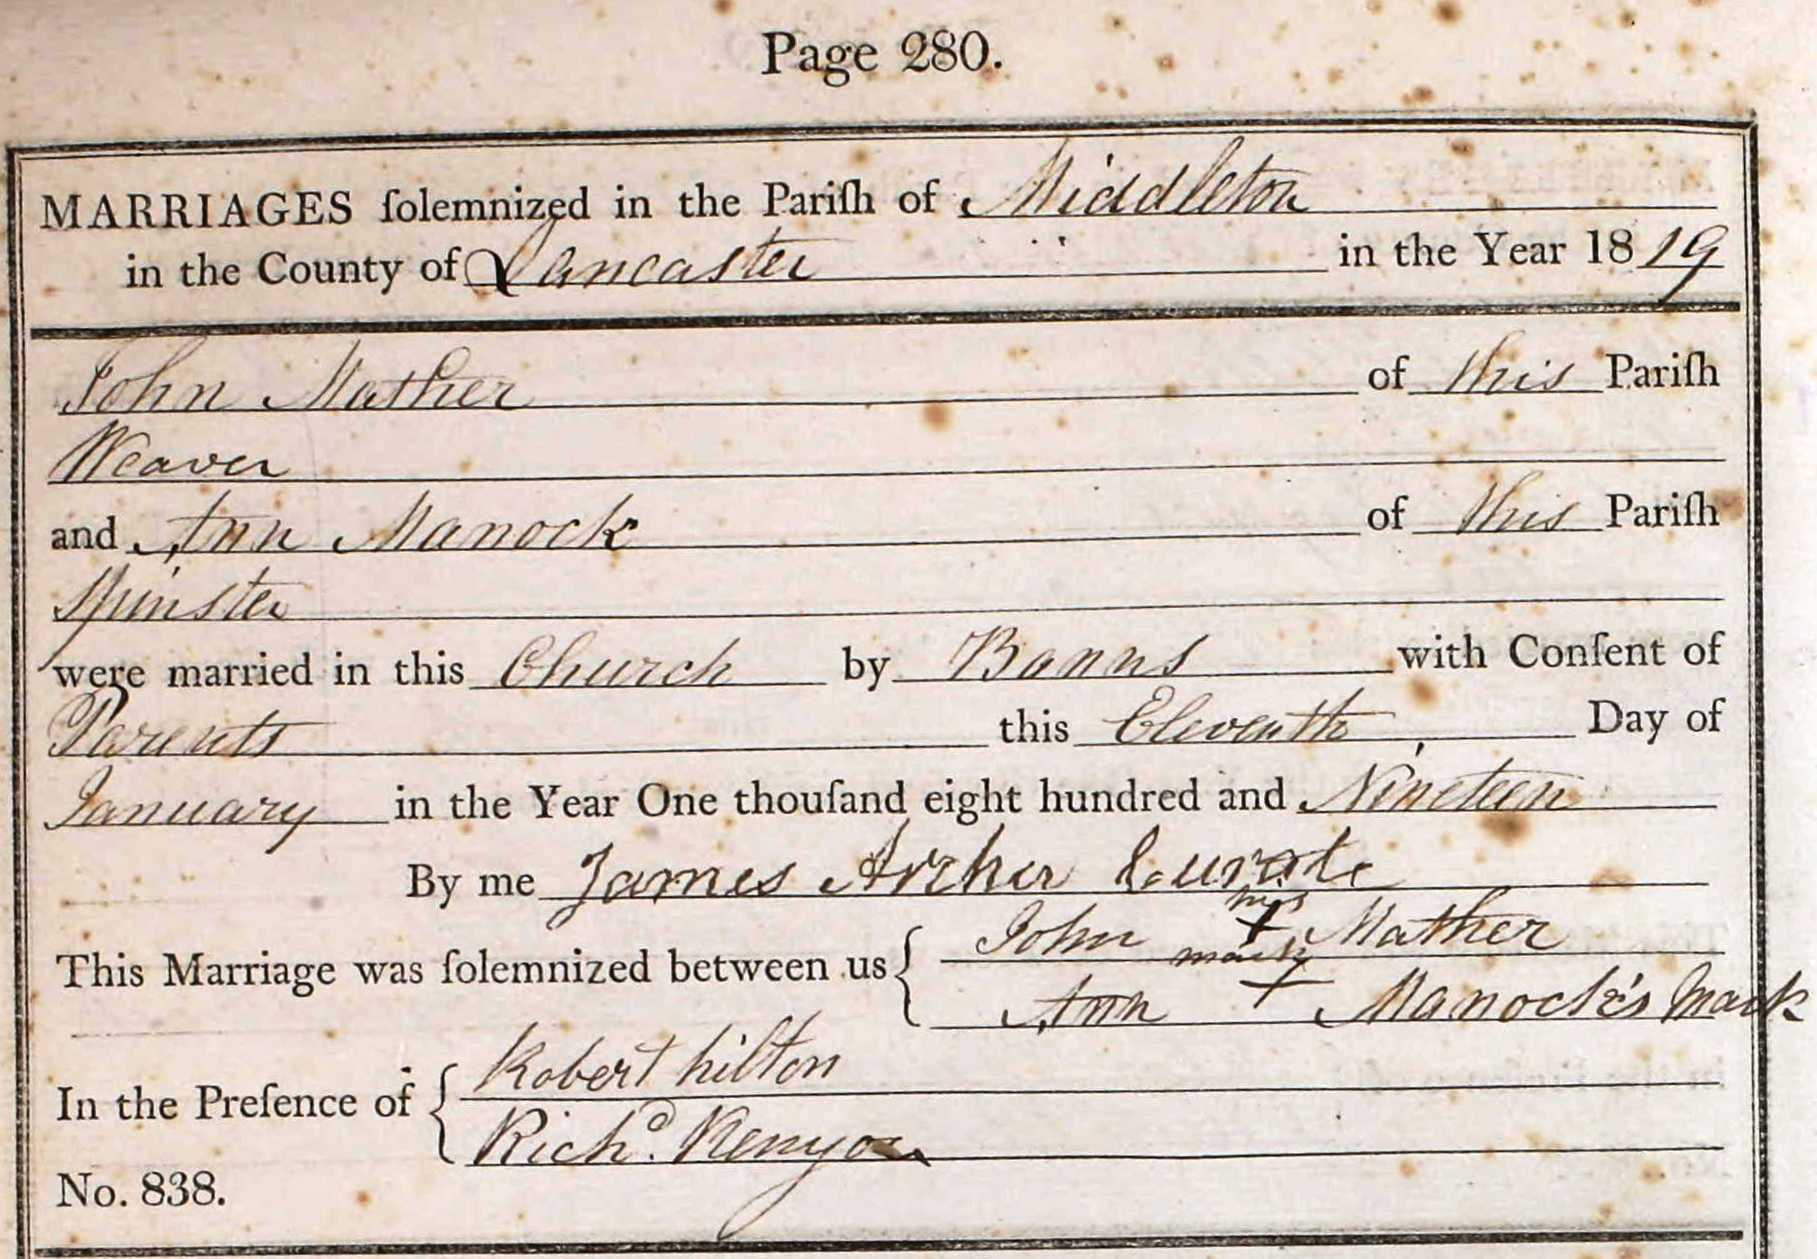 Page 280.
MARRIAGES ſolemnized in the Pariſh of Middleton
in the County of Lancaster in the Year 1819
John Mather of this Pariſh
Weaver
and Ann Manock of this Pariſh
Spinster
were married in this Church by Banns with Conſent of
Parents this Eleventh Day of
January in the Year One thouſand eight hundred and Nineteen
By me James Archer Curate
his
This Marriage was ſolemnized between us { John + Mather
mark
Ann + Manock's Mark
In the Preſence of { Robert hilton
Richd. Kenyon
No. 838.